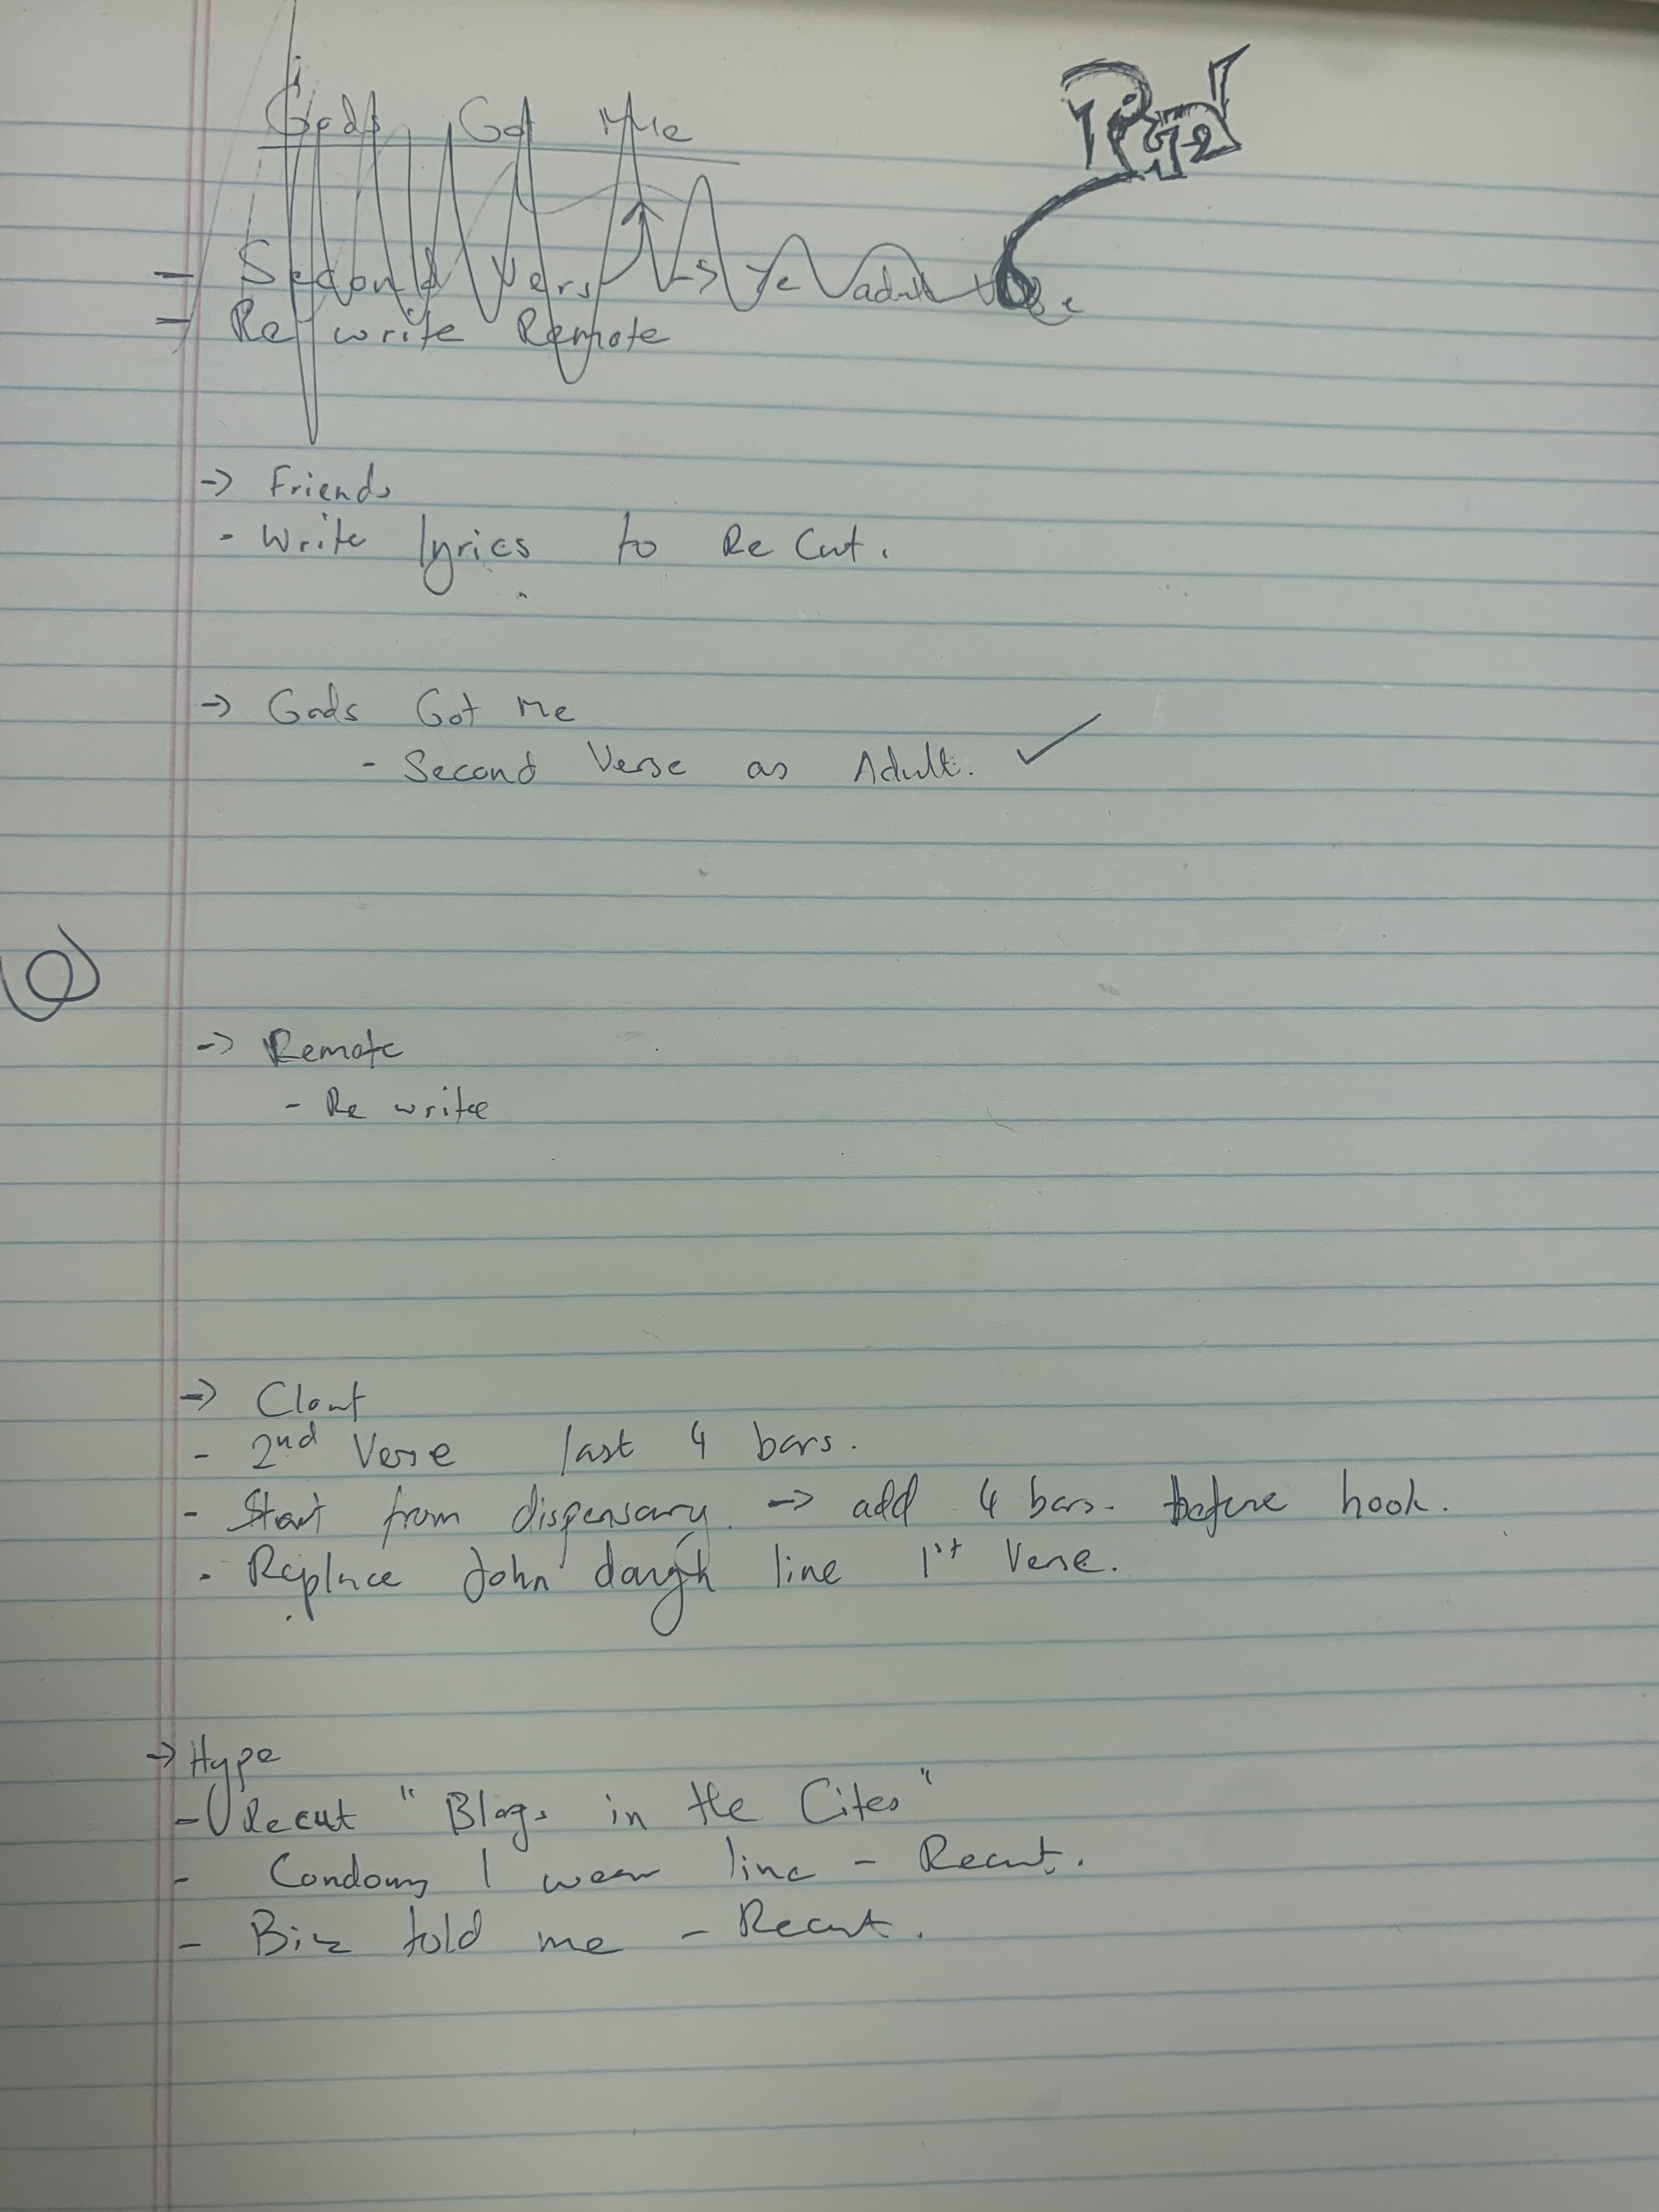 Gods Got Me
- Second Vers -> Ye adult
- Re write Remote
-> Friends
- Write lyrics to Re Cut.
-> Gods Got Me
- Second Verse as Adult. ✓
-> Remote
- Re write
-> Clout
- 2nd Verse last 4 bars.
- Start from dispensary. -> add 4 bars. before hook.
- Replace John line 1st Verse.
-> Hype
- Recut "Blogs in the Cites"
- Condoms I wear line - Recut.
- Biz told me - Recut.